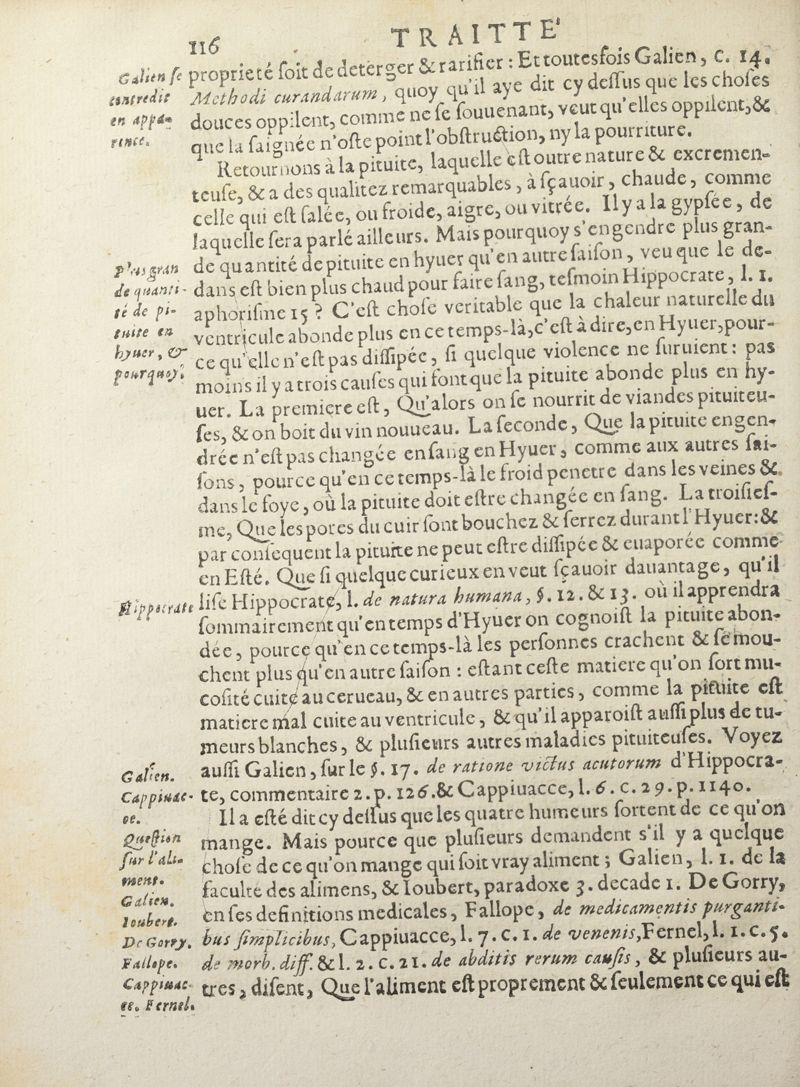 116
TRAITTE'
Galien se
contredit
en appa-
rence.
proprieté soit de deterger & rarifier : Et toutesfois Galien, c. 14.
Methodi curandarum, quoy qu'il aye dit cy dessus que les choses
douces oppilent, comme ne se souuenant, veut qu'elles oppilent, &
que la saignée n'oste point l'obstruction, ny la pourriture.
Retournons à la pituite, laquelle est outre nature & excremen-
teuse, & a des qualitez remarquables, à sçauoir, chaude, comme
celle qui est salée, ou froide, aigre, ou vitrée. Il y a la gypsée, de
laquelle sera parlé ailleurs. Mais pourquoy s'engendre plus gran-
Plus gran
de quanti-
té de pi-
tuite en
hyuer, &
pourquoy.
de quantité de pituite en hyuer qu'en autre saison, veu que le de-
dans est bien plus chaud pour faire sang, tesmoin Hippocrate, l. 1.
aphorisme 15 ? C'est chose veritable que la chaleur naturelle du
ventricule abonde plus en ce temps-là, c'est à dire, en Hyuer, pour-
ce qu'elle n'est pas dissipée, si quelque violence ne suruient : pas
moins il y a trois causes qui font que la pituite abonde plus en hy-
uer. La premiere est, Qu'alors on se nourrit de viandes pituiteu-
ses, & on boit du vin nouueau. La seconde, Que la pituite engen-
drée n'est pas changée en sang en Hyuer, comme aux autres sai-
sons, pource qu'en ce temps-là le froid penetre dans les veines &
dans le foye, où la pituite doit estre changée en sang. La troisies-
me, Que les pores du cuir sont bouchez & serrez durant l'Hyuer: &
par consequent la pituite ne peut estre dissipée & euaporée comme
en Esté. Que si quelque curieux en veut sçauoir dauantage, qu'il
Hippocrate
lise Hippocrate, l. de natura humana, §. 12. & 13. où il apprendra
sommairement qu'en temps d'Hyuer on cognoist la pituite abon-
dée, pource qu'en ce temps-là les personnes crachent & se mou-
chent plus qu'en autre saison : estant ceste matiere qu'on sort mu-
cosité cuite au cerueau, & en autres parties, comme la pituite est
matiere mal cuite au ventricule, & qu'il apparoist aussi plus de tu-
meurs blanches, & plusieurs autres maladies pituiteuses. Voyez
Galien.
Cappiuac-
ce.
aussi Galien, sur le §. 17. de ratione victus acutorum d'Hippocra-
te, commentaire 2. p. 126. & Cappiuacce, l. 6. c. 29. p. 1140.
Il a esté dit cy dessus que les quatre humeurs sortent de ce qu'on
Question
sur l'ali-
ment.
Galien.
Ioubert.
De Gorry.
Fallope.
Cappiuac-
ce. Fernel.
mange. Mais pource que plusieurs demandent s'il y a quelque
chose de ce qu'on mange qui soit vray aliment ; Galien, l. 1. de la
faculté des alimens, & Ioubert, paradoxe 3. decade 1. De Gorry,
en ses definitions medicales, Fallope, de medicamentis purganti-
bus simplicibus, Cappiuacce, l. 7. c. 1. de venenis, Fernel, l. 1. c. 5.
de morb. diff. & l. 2. c. 21. de abditis rerum causis, & plusieurs au-
tres, disent, Que l'aliment est proprement & seulement ce qui est